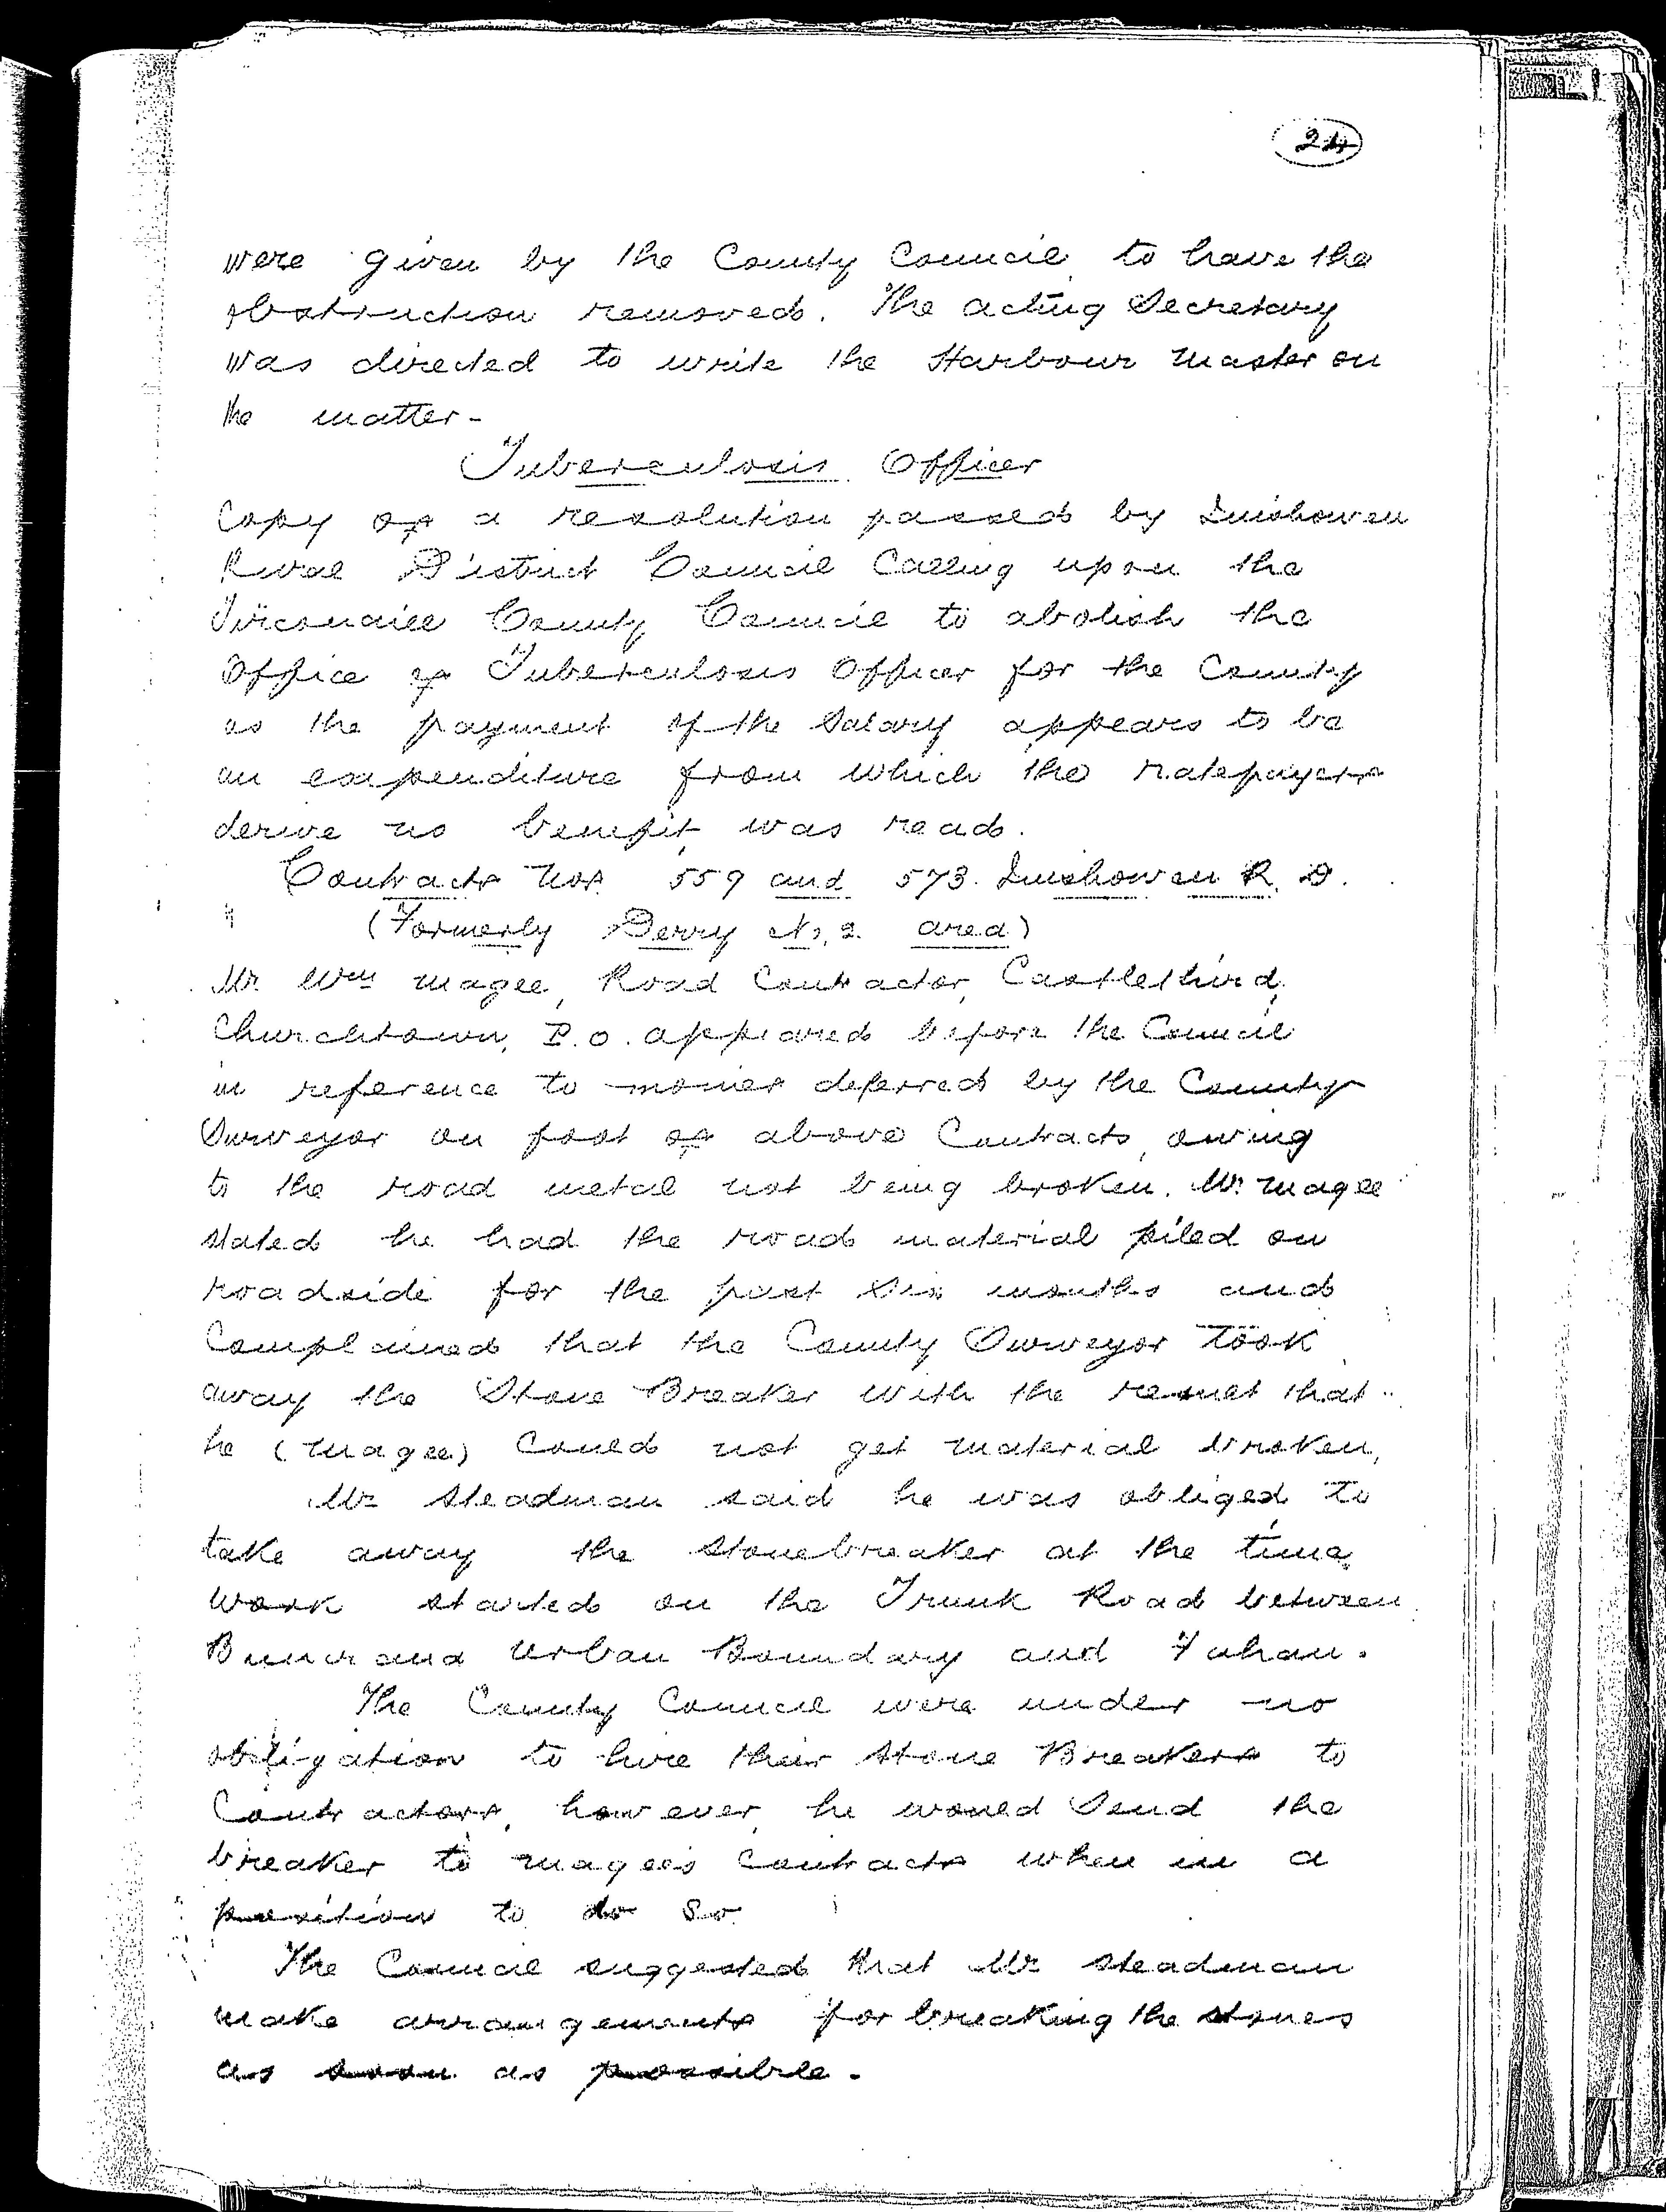 24
were given by the County Council to have the
obstruction removed. The acting Secretary
was directed to write the Harbour Master on
the matter-
Tuberculosis Officer
Copy of a resolution passed by Inishowen
Rural District Council Calling upon the
Tirconaill County Council to abolish the
Office of Tuberculosis Officer for the County
as the payment of the Salary appears to be
an expenditure from which the ratepayers
derive no benefit, was read.
Contracts Nos. 559 and 573. Inishowen R. D.
(Formerly Derry No. 2. area)
Mr. Wm Magee, Road Contractor, Castlethird,
Churchtown, P.O. appeared before the Council
in reference to monies deferred by the County
Surveyor on foot of above Contracts, owing
to the road metal not being broken. Mr. Magee
stated he had the road material piled on
roadside for the past six months and
Complained that the County Surveyor took
away the Stone Breaker with the result that
he (Magee) Could not get material broken,
Mr Steadman said he was obliged to
take away the stonebreaker at the time
work started on the Trunk Road between
Buncrana Urban Boundary and Fahan.
The County Council were under no
obligation to hire their Stone Breakers to
Contractors, however, he would Send the
breaker to Magee's Contracts when in a
position to do so
The Council suggested that Mr Steadman
make arrangements for breaking the stones
as soon as possible.